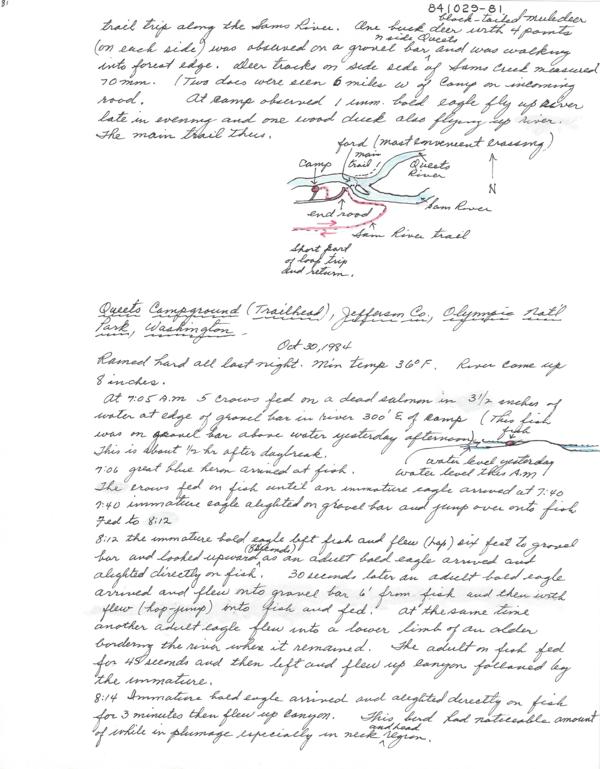 81
841029-81
black-tailed muledeer
trail trip along the Sams River. One buck deer with 4 points
n side Queets
(on each side) was observed on a gravel bar ^ and was walking
into forest edge. Deer tracks on side side of Sams Creek measured
70 mm. (Two does were seen 6 miles W of Camp on incoming
road. At camp observed 1 imm. bald eagle fly up river
late in evening and one wood duck also flying up river.
The main trail thus.
ford (most convenient crossing)
Camp
main
trail
Queets
River
N
Sam River
end road
Sam River trail
Short part
of loop trip
and return.
Queets Campground (Trailhead), Jefferson Co., Olympic Nat'l
Park, Washington
Oct 30, 1984
Rained hard all last night. Min temp 36°F. River came up
8 inches.
At 7:05 A.M 5 crows fed on a dead salmon in 3 1/2 inches of
water at edge of gravel bar in river 300' E of camp (This fish
was on gravel bar above water yesterday afternoon)
fish
This is about 1/2 hr after daybreak.
water level yesterday
7:06 great blue heron arrived at fish.
water level this A.M.
The crows fed on fish until an immature eagle arrived at 7:40
7:40 immature eagle alighted on gravel bar and jump over onto fish
Fed to 8:12
8:12 the immature bald eagle left fish and flew (hop) six feet to gravel
bar and looked upward ^ as an adult bald eagle arrived and
alighted directly on fish. 30 seconds later an adult bald eagle
arrived and flew onto gravel bar 6' from fish and then with
flew (hop-jump) onto fish and fed. At the same time
another adult eagle flew into a lower limb of an alder
bordering the river where it remained. The adult on fish fed
for 45 seconds and then left and flew up canyon followed by
the immature.
8:14 Immature bald eagle arrived and alighted directly on fish
for 3 minutes then flew up canyon. This bird had noticeable amount
and head
of white in plumage especially in neck ^ region.